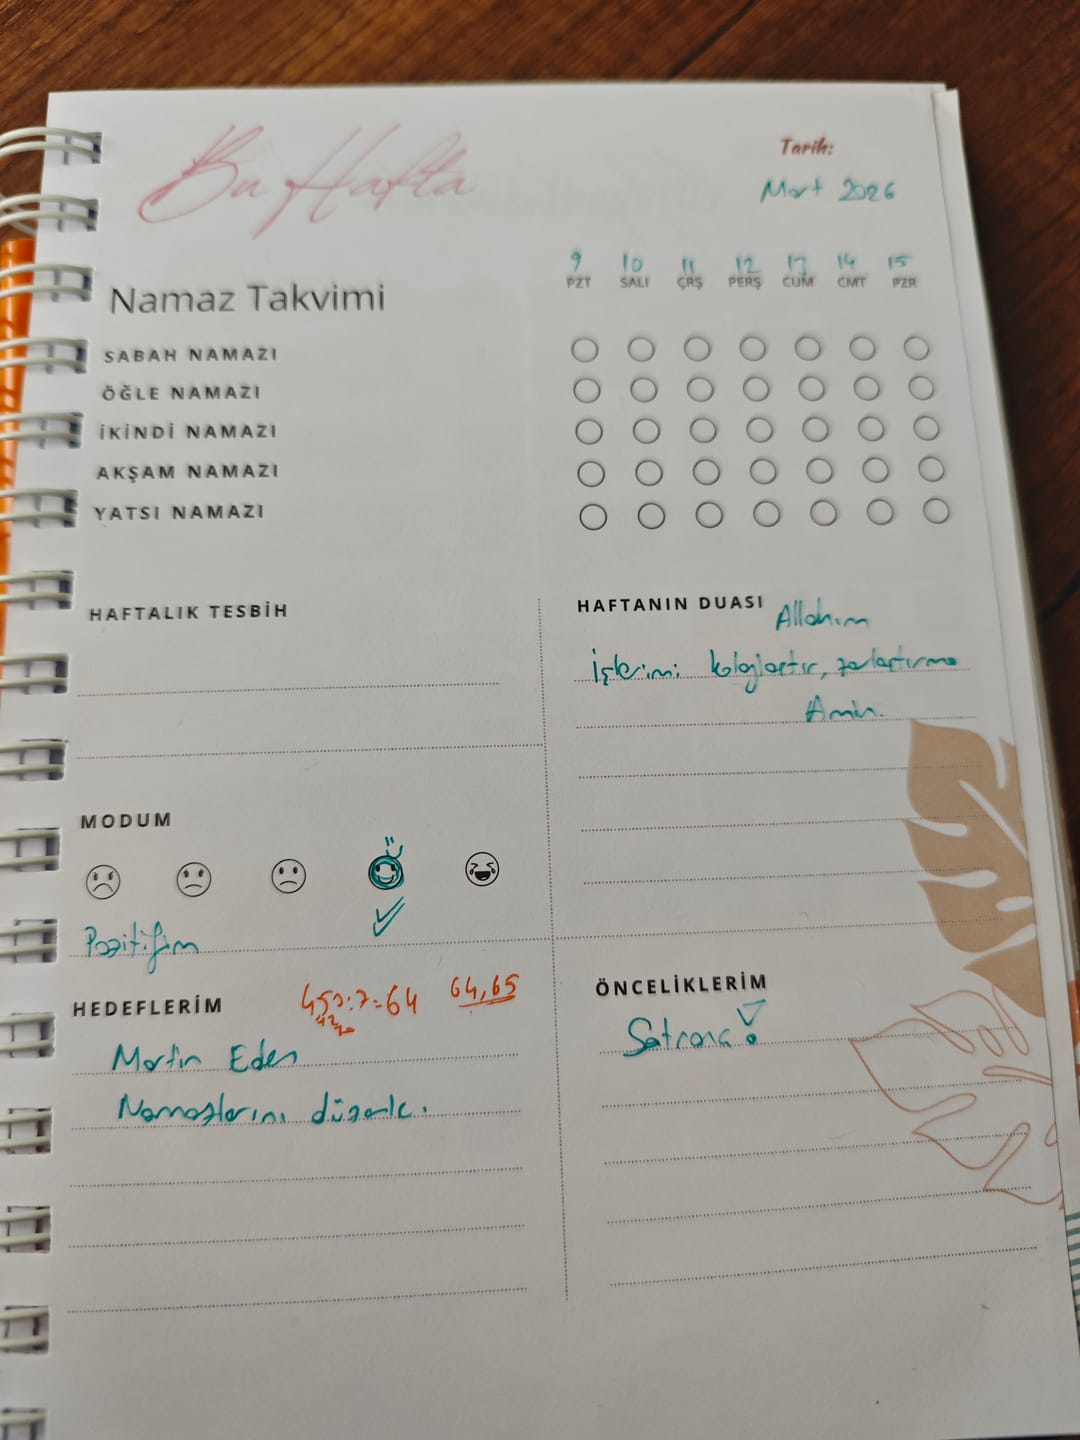 Bu Hafta
Tarih:
Mart 2026
9 10 11 12 13 14 15
PZT SALI ÇRŞ PERŞ CUM CMT PZR
Namaz Takvimi
SABAH NAMAZI
ÖĞLE NAMAZI
İKİNDİ NAMAZI
AKŞAM NAMAZI
YATSI NAMAZI
HAFTALIK TESBİH
HAFTANIN DUASI Allahım
İşlerimi kolaylaştır, zorlaştırma
Amin.
MODUM
Pozitifim
HEDEFLERİM 453:7=64 64,65
42
Martin Eden
Namazlarını düzenle.
ÖNCELİKLERİM
Satranç!